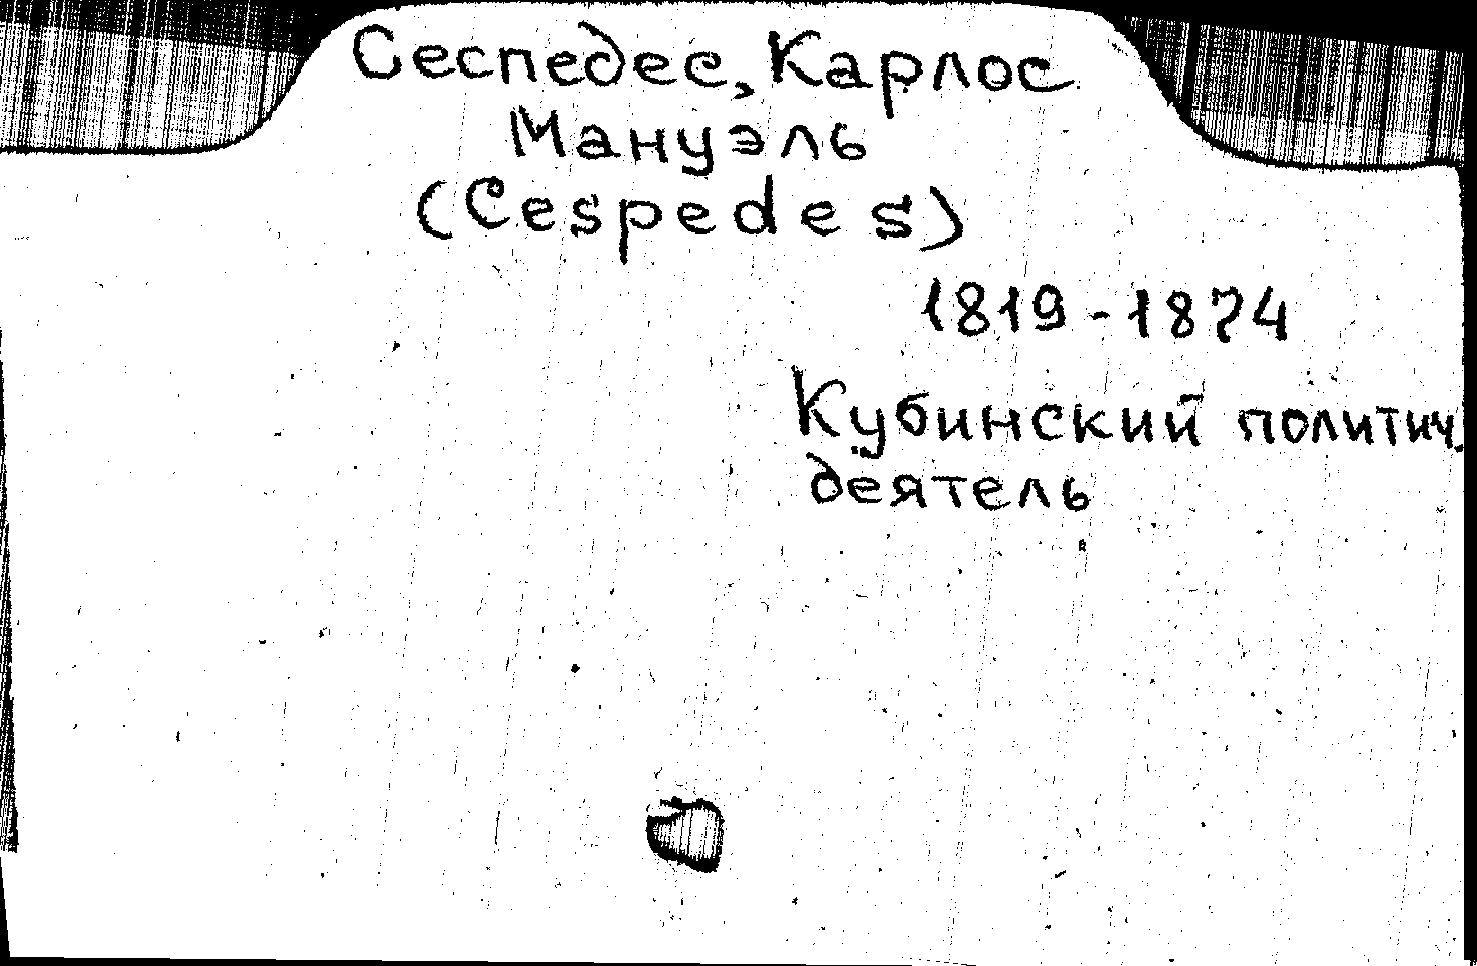 Сеспедес, Карлос
Мануэль
(Cespedes)
1819-1874
Кубинский политич.
деятель